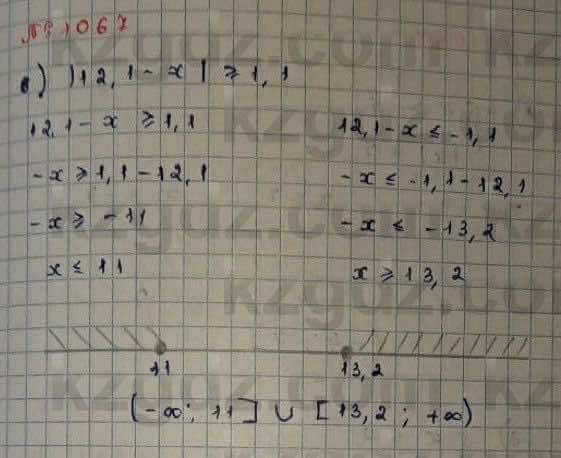 № 1067
в) |12,1 - x| ⩾ 1,1
12,1 - x ⩾ 1,1    12,1 - x ⩽ -1,1
-x ⩾ 1,1 - 12,1    -x ⩽ -1,1 - 12,1
-x ⩾ -11    -x ⩽ -13,2
x ⩽ 11    x ⩾ 13,2
11    13,2
(-∞; 11] ∪ [13,2; +∞)
kzgdz.com